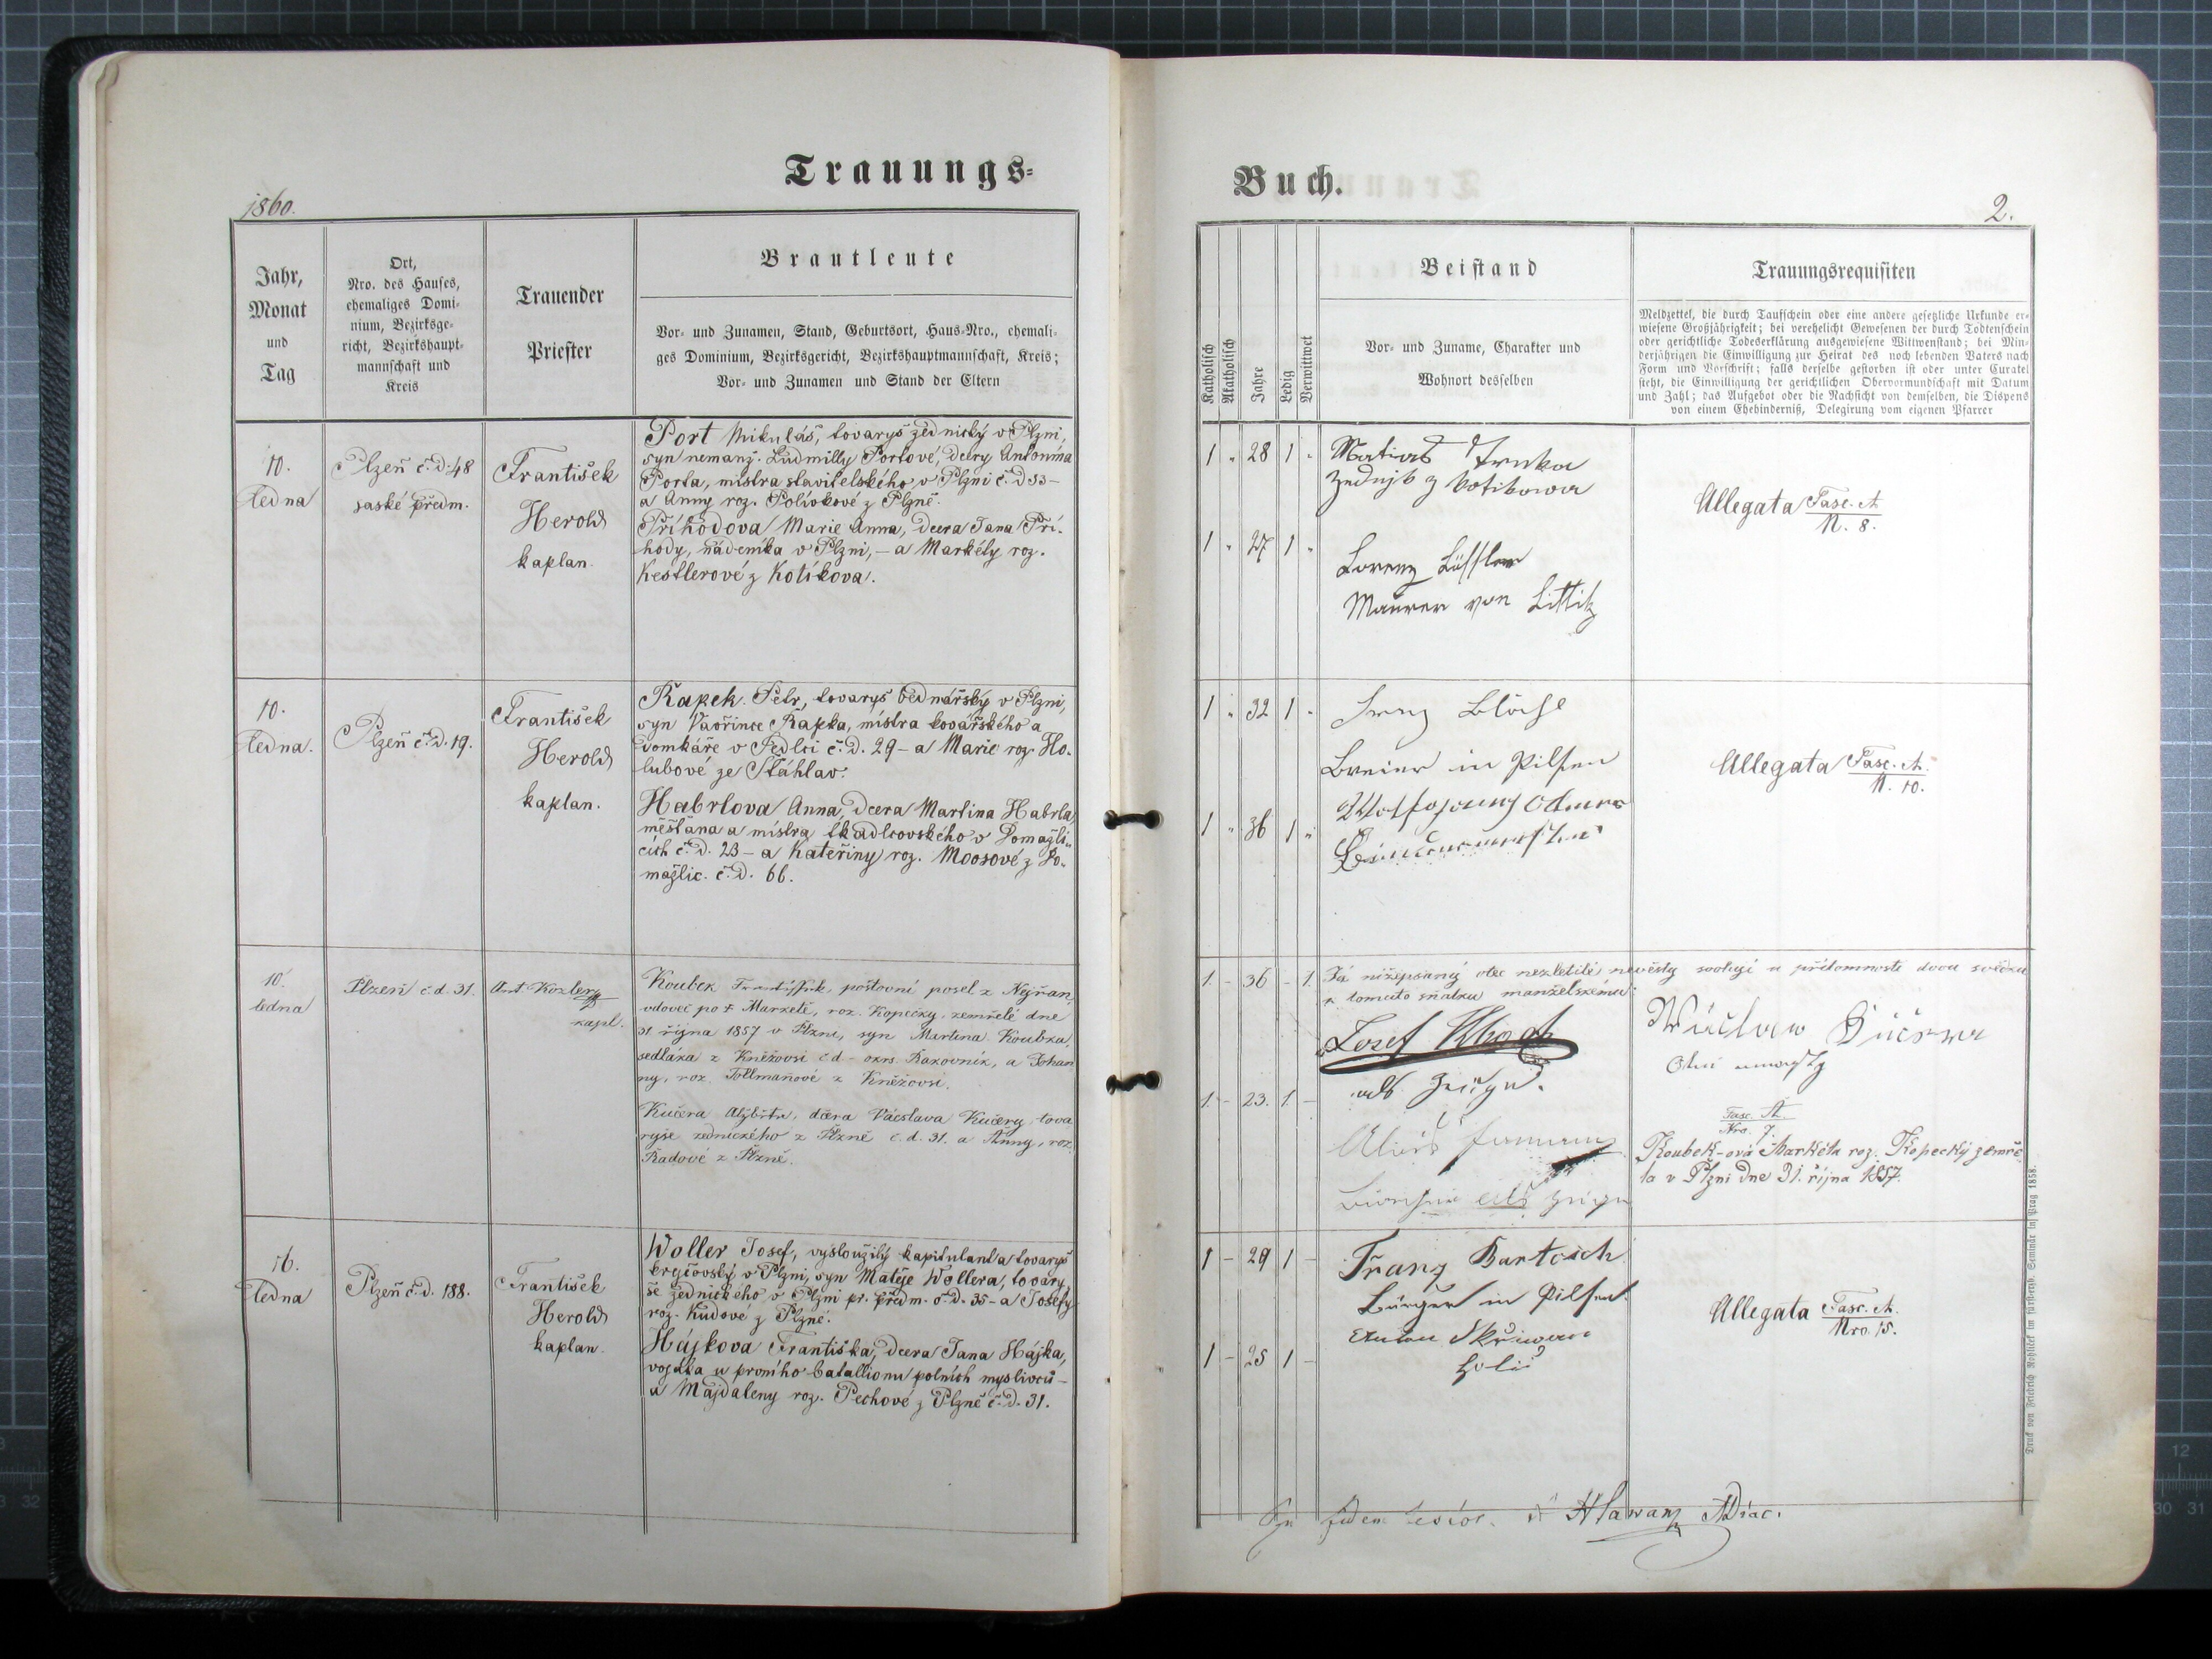 Trauungs-
1860.
Jahr,
Monat
und
Tag
Ort,
Nro. des Hauses,
ehemaliges Domi-
nium, Bezirksge-
richt, Bezirkshaupt-
mannschaft und
Kreis
Trauender
Priester
Brautleute
Vor- und Zunamen, Stand, Geburtsort, Haus-Nro., ehemali-
ges Dominium, Bezirksgericht, Bezirkshauptmannschaft, Kreis;
Vor- und Zunamen und Stand der Eltern
10.
ledna
Plzeň č. d. 48
saské předm.
František
Herold
kaplan.
Port Mikuláš, tovaryš zednický v Plzni,
syn nemanž. Ludmilly Portové, dcery Antonína
Porta, mistra stavitelského v Plzni č. d 33 –
a Anny roz. Polívkové z Plzně.
Příhodova Marie Anna, dcera Jana Pří-
hody, nádeníka v Plzni, – a Markéty roz.
Kestlerové z Kotíkova.
10.
ledna.
Plzeň č. d. 19.
František
Herold
kaplan.
Rapek Petr, tovaryš bednářský v Plzni,
syn Vavřince Rapka, mistra kovářského a
domkáře v Sedlci č. d. 29 – a Marie roz. Ho-
lubové ze Šťáhlav.
Habrlova Anna, dcera Martina Habrla,
měšťana a mistra tkadlcovského v Domažli-
cích č. d. 23 – a Kateřiny roz. Moosové z Do-
mažlic. č. d. 66.
10.
ledna
Plzeň č. d. 31.
Ant. Kozler
kapl.
Koubek František, poštovní posel z Nýřan,
vdovec po † Markétě, roz. Kopecky, zemřelé dne
31 října 1857 v Plzni, syn Martina Koubka,
sedláka z Kněžovsi č d – okrs. Rakovník, a Johan
ny, roz. Tollmanové z Kněžovsi.
Kučera Alžběta, dcera Václava Kučery, tova
ryše zednického z Plzně č. d. 31. a Anny, roz.
Radové z Plzně.
16.
ledna
Plzeň č. d. 188.
František
Herold
kaplan.
Woller Josef, vysloužilý kapitulant a tovaryš
krejčovský v Plzni, syn Matěje Wollera, tovary-
še zednického v Plzni pr. předm. č. d. 35 – a Josefy
roz. Kudové z Plzně.
Hájkova Františka, dcera Jana Hájka,
vojáka u prvního batallionu polních myslivců –
a Majdaleny roz. Pechové z Plzně č. d. 31.
Buch.
2.
Katholisch
Akatholisch
Jahre
Ledig
Verwittwet
Beistand
Vor- und Zuname, Charakter und
Wohnort desselben
Trauungsrequisiten
Meldzettel, die durch Taufschein oder eine andere gesetzliche Urkunde er-
wiesene Großjährigkeit; bei verehelicht Gewesenen der durch Todtenschein
oder gerichtliche Todeserklärung ausgewiesene Wittwenstand; bei Min-
derjährigen die Einwilligung zur Heirat des noch lebenden Vaters nach
Form und Vorschrift; falls derselbe gestorben ist oder unter Curatel
steht, die Einwilligung der gerichtlichen Obervormundschaft mit Datum
und Zahl; das Aufgebot oder die Nachsicht von demselben, die Dispens
von einem Ehehinderniß, Delegirung vom eigenen Pfarrer
1 " 28 1 "
Matias Trnka
Zednjk z Kotikowa
1 " 27 1 "
Lorenz Löffler
Maurer von Littitz
Allegata Fasc. A.
N. 8.
1 " 32 1 "
Franz
in Pilsen
1 " 36 1 "
Allegata Fasc. A.
N. 10.
1. – 36 – 1.
Já nížepsaný otec nezletilé nevěsty svoluji u přítomnosti dvou svědku
k tomuto sňatku manželskému:
Josef
als Zeuge.
1. – 23. 1. –
als Zeuge
Wáclaw Kučera
Otec newesty
Fasc. A.
Nro. 7.
Koubek-ová Markéta roz. Kopecký zemře-
la v Plzni dne 31. října 1857.
1 – 29 1 –
Franz Bartosch
Bürger in Pilsen.
1 – 25 1 –
Skřiwan
holič
Allegata Fasc. A.
Nro. 15.
Hlawan
Druck von Friedrich Rohliček im fürsterzb. Seminär in Prag 1858.